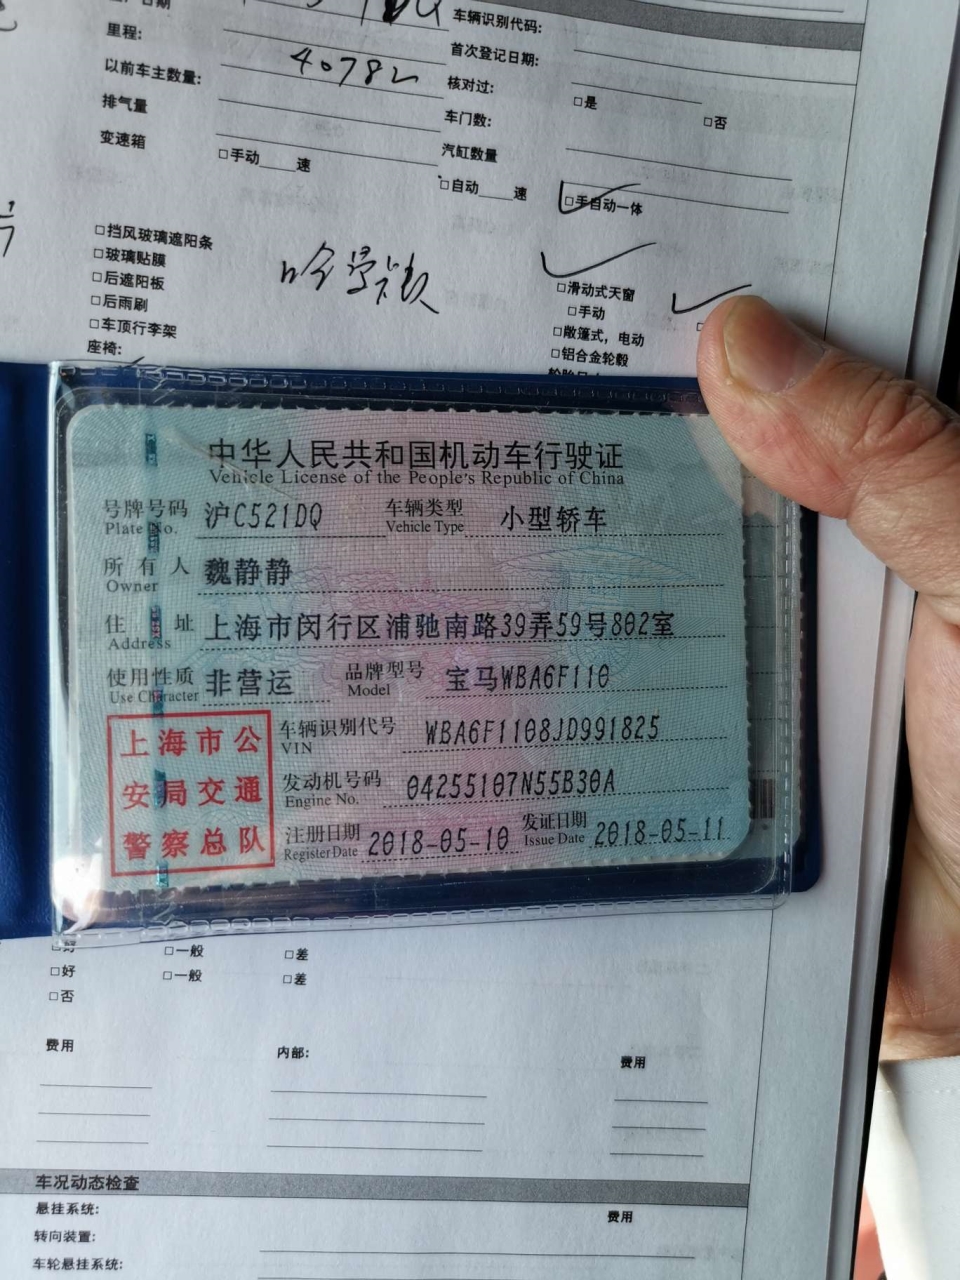 车辆识别代码:
里程:
首次登记日期:
40782
以前车主数量:
核对过:
□是
□否
排气量
车门数:
变速箱
□手动 速
汽缸数量
□自动 速
□手自动一体
□挡风玻璃遮阳条
□玻璃贴膜
□后遮阳板
□后雨刷
□车顶行李架
座椅:
□滑动式天窗
□手动
□敞篷式，电动
□铝合金轮毂
中华人民共和国机动车行驶证
Vehicle License of the People's Republic of China
号牌号码 沪C521DQ 车辆类型 小型轿车
Plate No. Vehicle Type
所有人 魏静静
Owner
住址 上海市闵行区浦驰南路39弄59号802室
Address
使用性质 非营运 品牌型号 宝马WBA6F110
Use Character Model
上海市公
安局交通
警察总队
车辆识别代号 WBA6F1108JD991825
VIN
发动机号码 04255107N55B30A
Engine No.
注册日期 2018-05-10 发证日期 2018-05-11
Register Date Issue Date
□好 □一般 □差
□好 □一般 □差
□否
费用 内部: 费用
车况动态检查
悬挂系统: 费用
转向装置:
车轮悬挂系统: